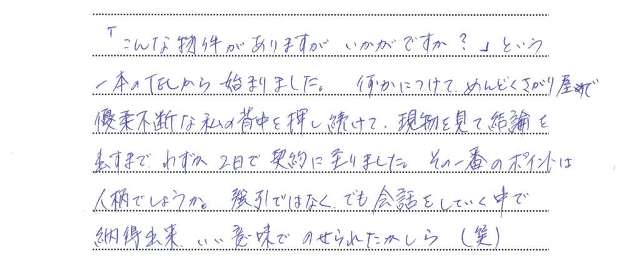 「こんな物件がありますが いかがですか？」という
一本のTELから始まりました。 何かにつけて めんどくさがり屋で
優柔不断な私の背中を押し続けて、現物を見て結論を
出すまで わずか 2日で契約に至りました。その一番のポイントは
人柄でしょうか。 強引ではなく、でも会話をしていく中で
納得出来、いい意味で のせられたかしら（笑）